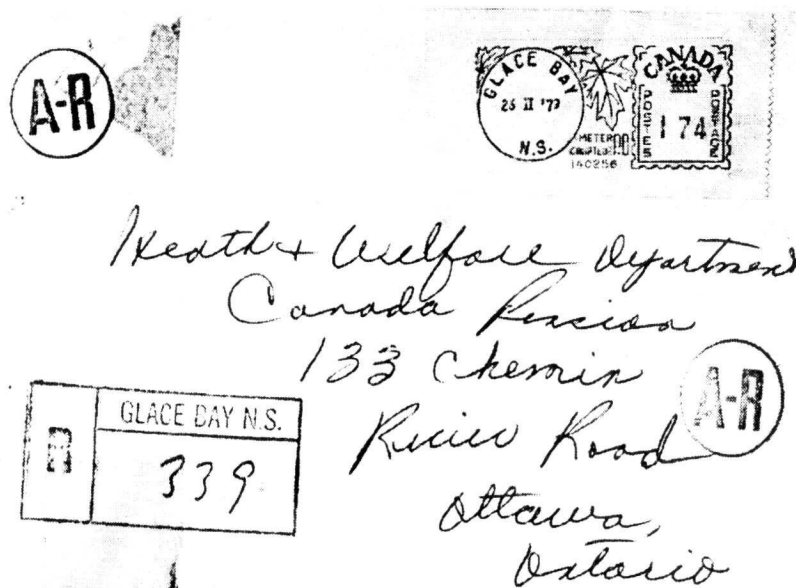 A-R
GLACE BAY
26 II '79
N.S.
METER
140256
CANADA
POSTES
POSTAGE
174
Health & Welfare Department
Canada Pension
133 Chemin
River Road
Ottawa,
Ontario
A-R
R
GLACE BAY N.S.
339